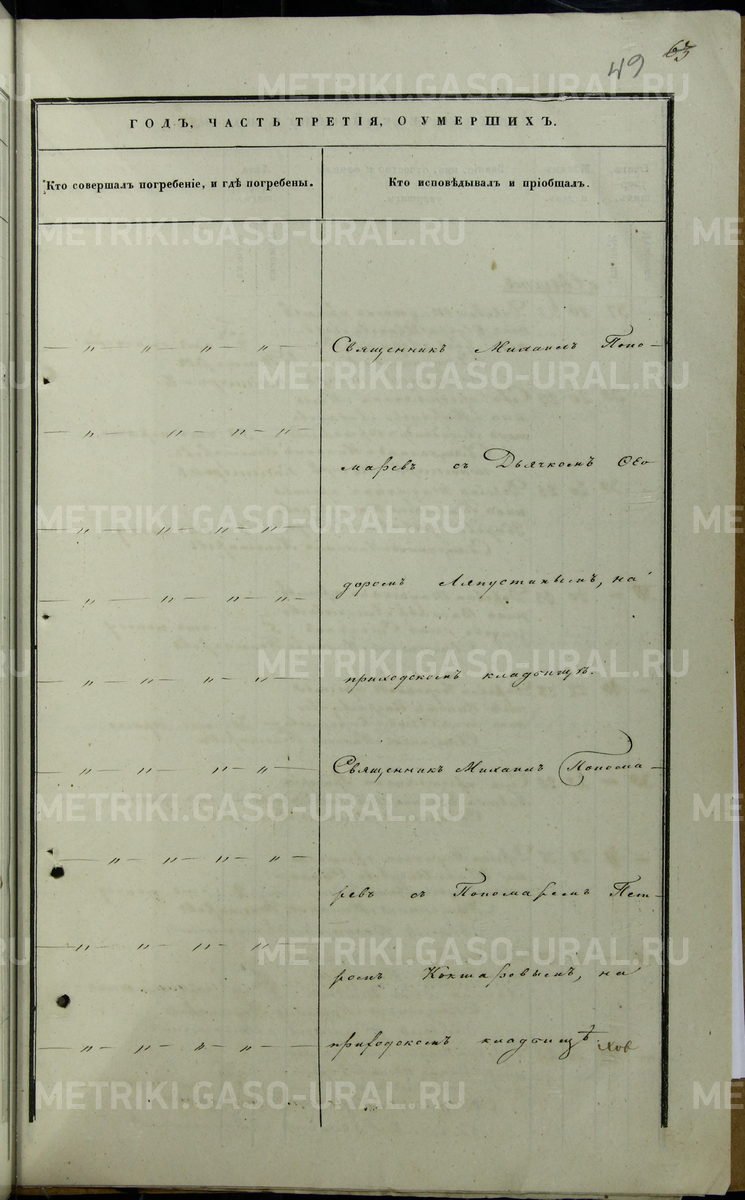 49 63
ГОДЪ, ЧАСТЬ ТРЕТІЯ, О УМЕРШИХЪ.
Кто совершалъ погребеніе, и гдѣ погребены.
Кто исповѣдывалъ и пріобщалъ.
— „ — „ — „ — „ — Священникъ Михаилъ Поно-
— „ — „ — „ — „ —
маревъ съ Дьячкомъ Ѳео
— „ — „ — „ — „ —
доромъ Ляпустинымъ, на
— „ — „ — „ — „ —
— „ — „ — „ — „ — приходскомъ кладбищѣ.
— „ — „ — „ — „ — Священникъ Михаилъ Понома-
— „ — „ — „ — „ —
ревъ съ Пономаремъ Пет-
— „ — „ — „ — „ —
ромъ Кокшаровымъ, на
— „ — „ — „ — „ — приходскомъ кладбищѣ
METRIKI.GASO-URAL.RU